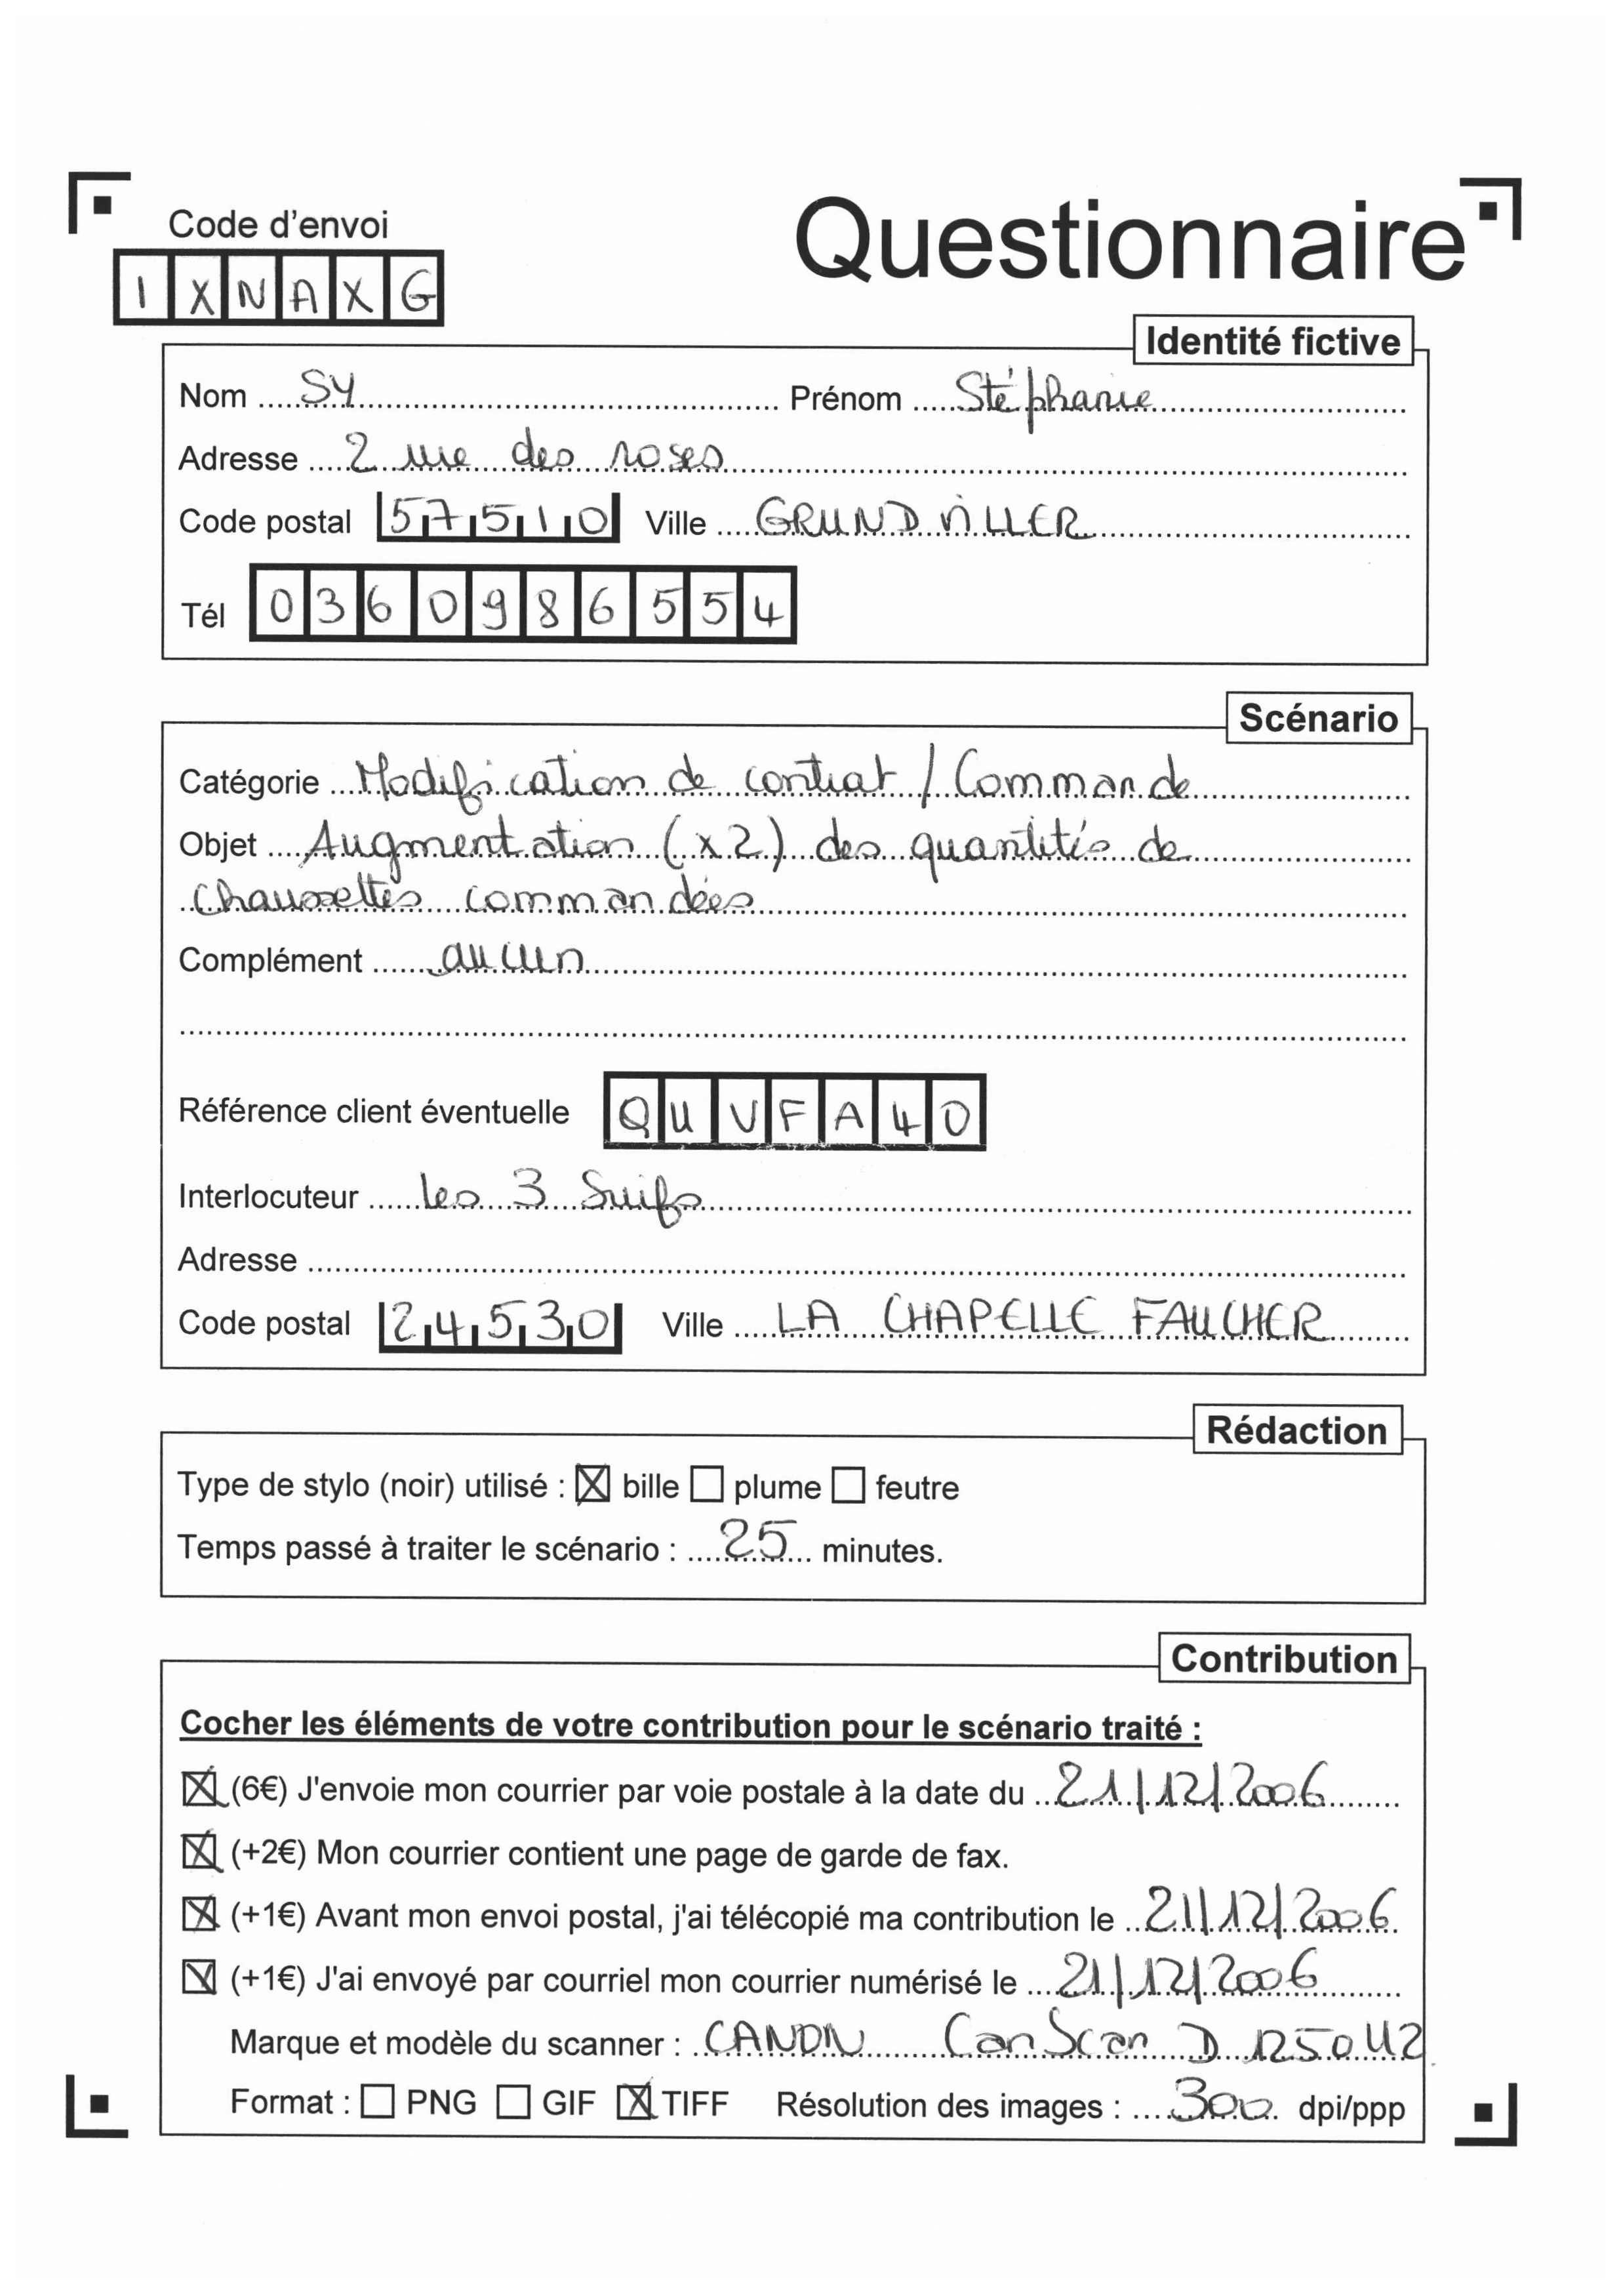 Code d'envoi
Questionnaire
IXNAXG
Identité fictive
Nom SY Prénom Stéphanie
Adresse 2 rue des roses
Code postal 57510 Ville GRUNDVILLER
Tél 0360986554
Scénario
Catégorie Modification de contrat / Commande
Objet Augmentation (x2) des quantités de
chaussettes commandées
Complément aucun
Référence client éventuelle QUVFA40
Interlocuteur les 3 Suifs
Adresse
Code postal 24530 Ville LA CHAPELLE FAUCHER
Rédaction
Type de stylo (noir) utilisé : ☒ bille ☐ plume ☐ feutre
Temps passé à traiter le scénario : 25 minutes.
Contribution
Cocher les éléments de votre contribution pour le scénario traité :
☒ (6€) J'envoie mon courrier par voie postale à la date du 21/12/2006
☒ (+2€) Mon courrier contient une page de garde de fax.
☒ (+1€) Avant mon envoi postal, j'ai télécopié ma contribution le 21/12/2006
☒ (+1€) J'ai envoyé par courriel mon courrier numérisé le 21/12/2006
Marque et modèle du scanner : CANON CanScan D 1250U2
Format : ☐ PNG ☐ GIF ☒ TIFF Résolution des images : 300 dpi/ppp